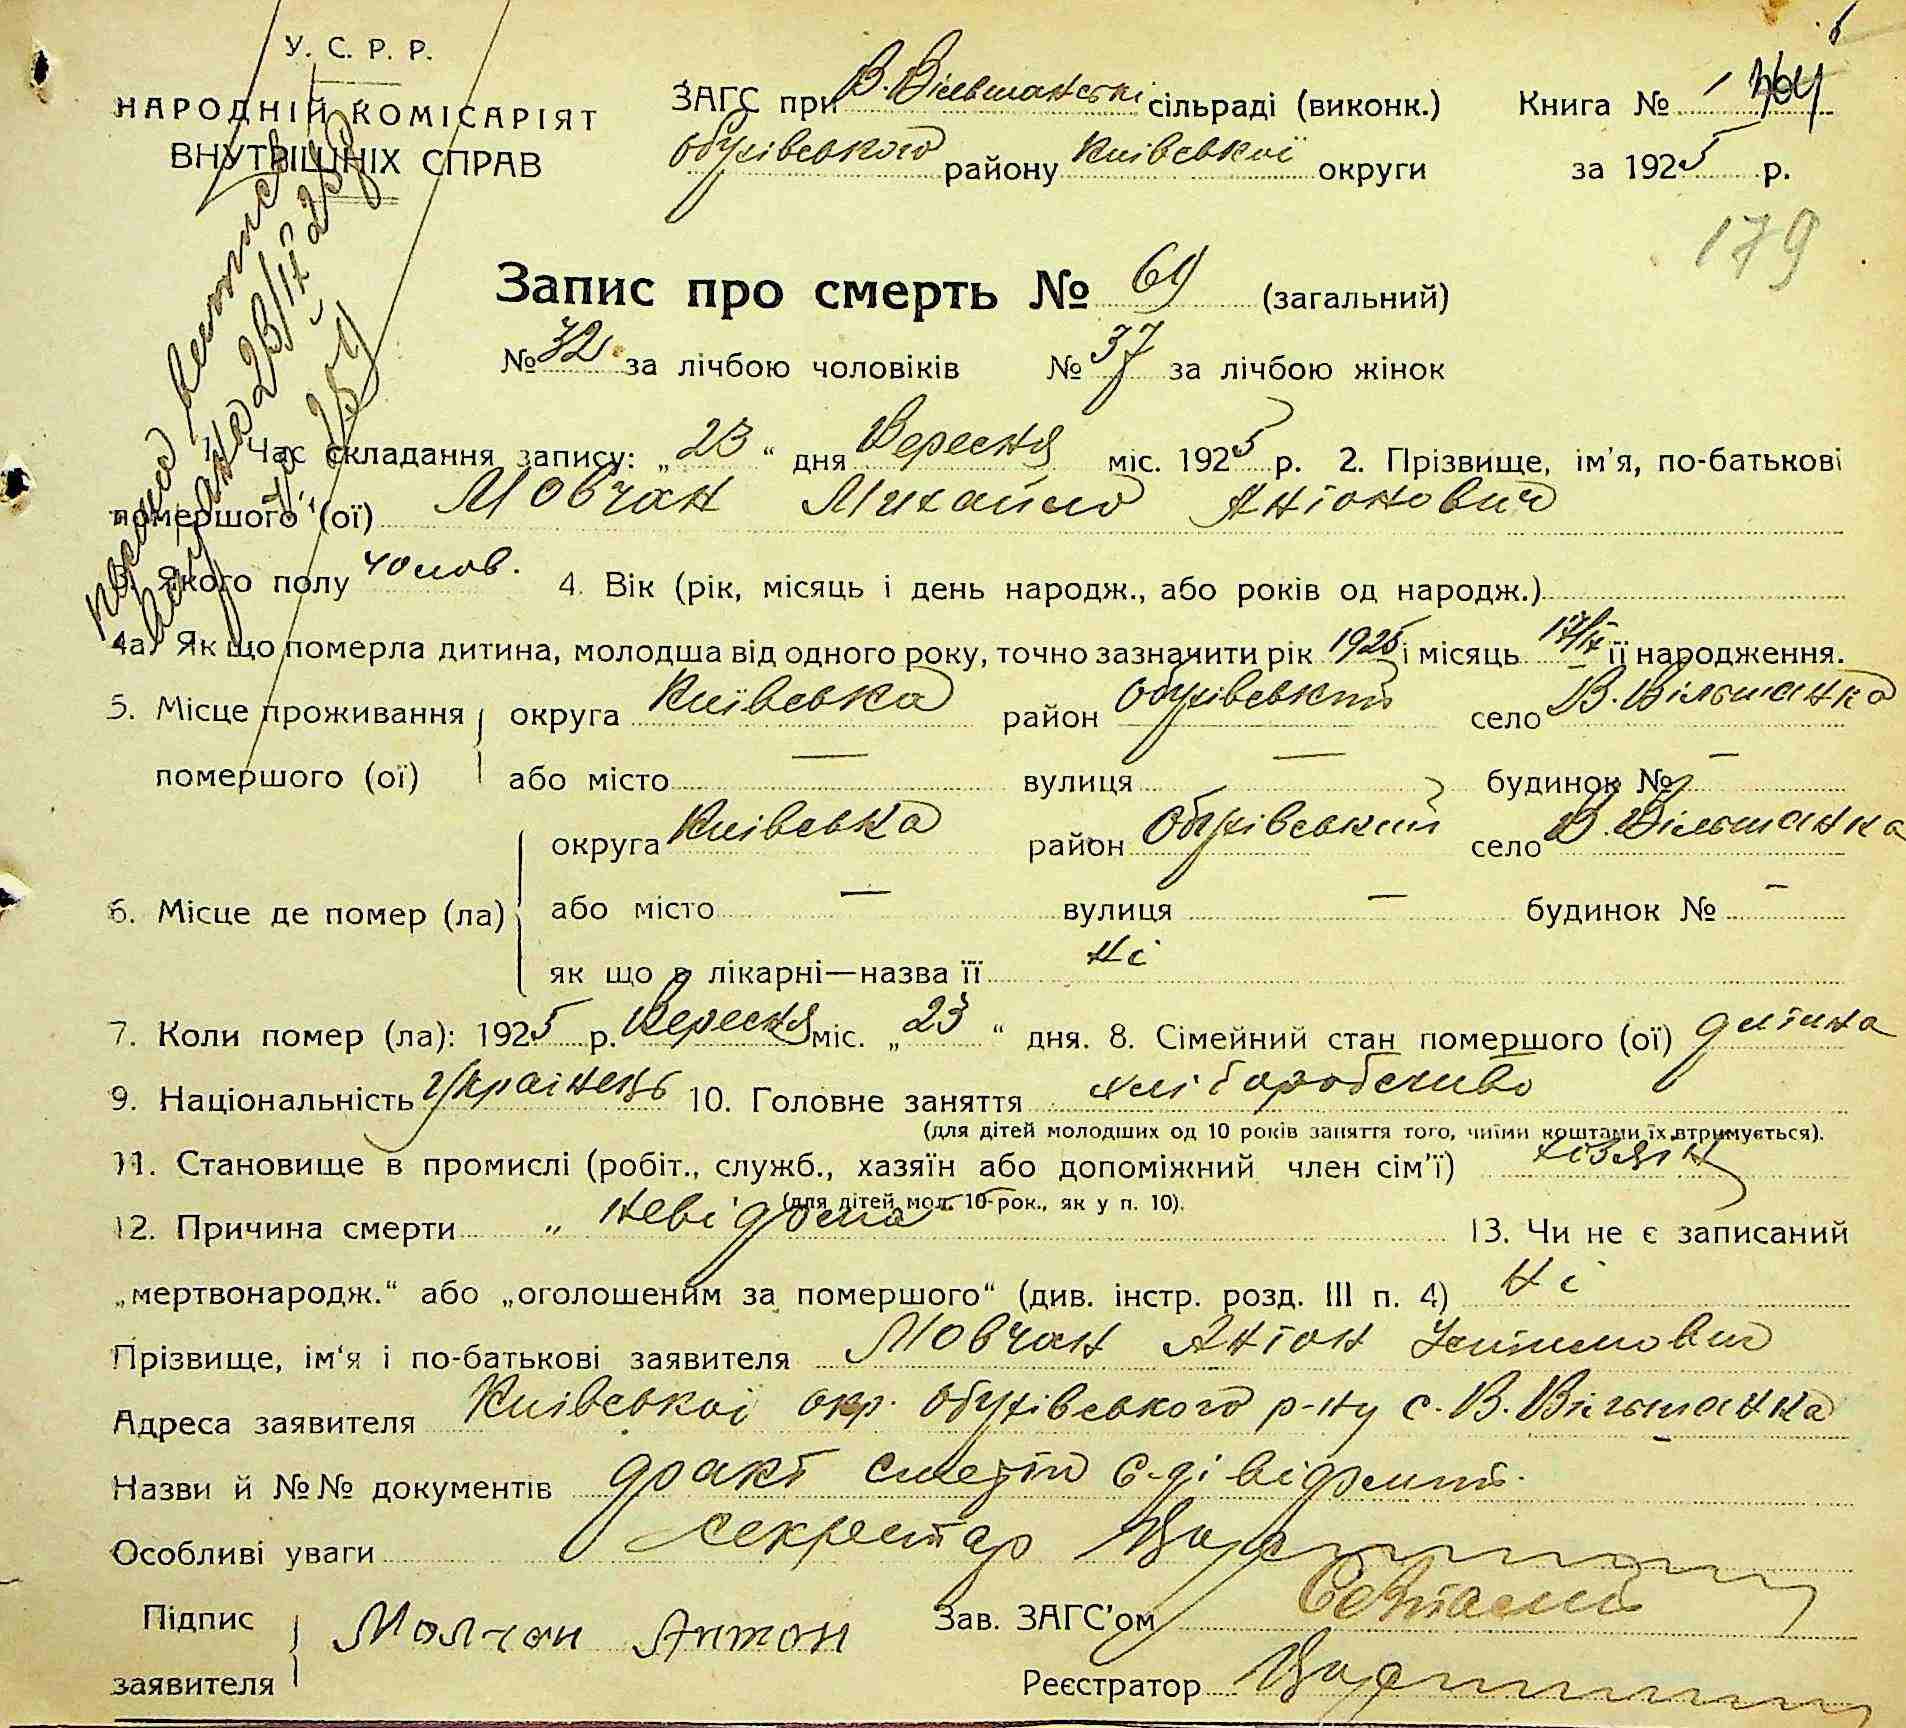 У. С. Р. Р.
НАРОДНІЙ КОМІСАРІЯТ
ВНУТРІШНІХ СПРАВ
ЗАГС при В. Вільшанські сільраді (виконк.)
Обухівського району Київської округи
Книга № 1
за 1925 р.
179
Запис про смерть № 69 (загальний)
№ 32 за лічбою чоловіків № 37 за лічбою жінок
1. Час складання запису: „23“ дня Вересня міс. 1925 р. 2. Прізвище, ім'я, по-батькові
помершого (ої) Мовчан Михайло Антонович
Якого полу чолов. 4. Вік (рік, місяць і день народж., або років од народж.)
4а. Як що померла дитина, молодша від одного року, точно зазначити рік 1925 і місяць 17/IX її народження.
5. Місце проживання округа Київська район Обухівський село В. Вільшанка
помершого (ої) або місто — вулиця — будинок № —
округа Київська район Обухівський село В. Вільшанка
6. Місце де помер (ла) або місто — вулиця — будинок № —
як що в лікарні—назва її Ні
7. Коли помер (ла): 1925 р. Вересня міс. „23“ дня. 8. Сімейний стан помершого (ої) дитина
9. Національність Українець 10. Головне заняття хліборобство
(для дітей молодших од 10 років заняття того, чиїми коштами їх втримується).
11. Становище в промислі (робіт., служб., хазяїн або допоміжний член сім'ї) хазяїн
(для дітей мол. 10-рок., як у п. 10).
12. Причина смерти „невідома“ 13. Чи не є записаний
„мертвонародж.“ або „оголошеним за помершого“ (див. інстр. розд. III п. 4) Ні
Прізвище, ім'я і по-батькові заявителя Мовчан Антон
Адреса заявителя Київської окр. Обухівського р-ну с. В. Вільшанка
Назви й №№ документів факт смерти
Особливі уваги секретар
Підпис заявителя Молчан Антон Зав. ЗАГС'ом
Реєстратор